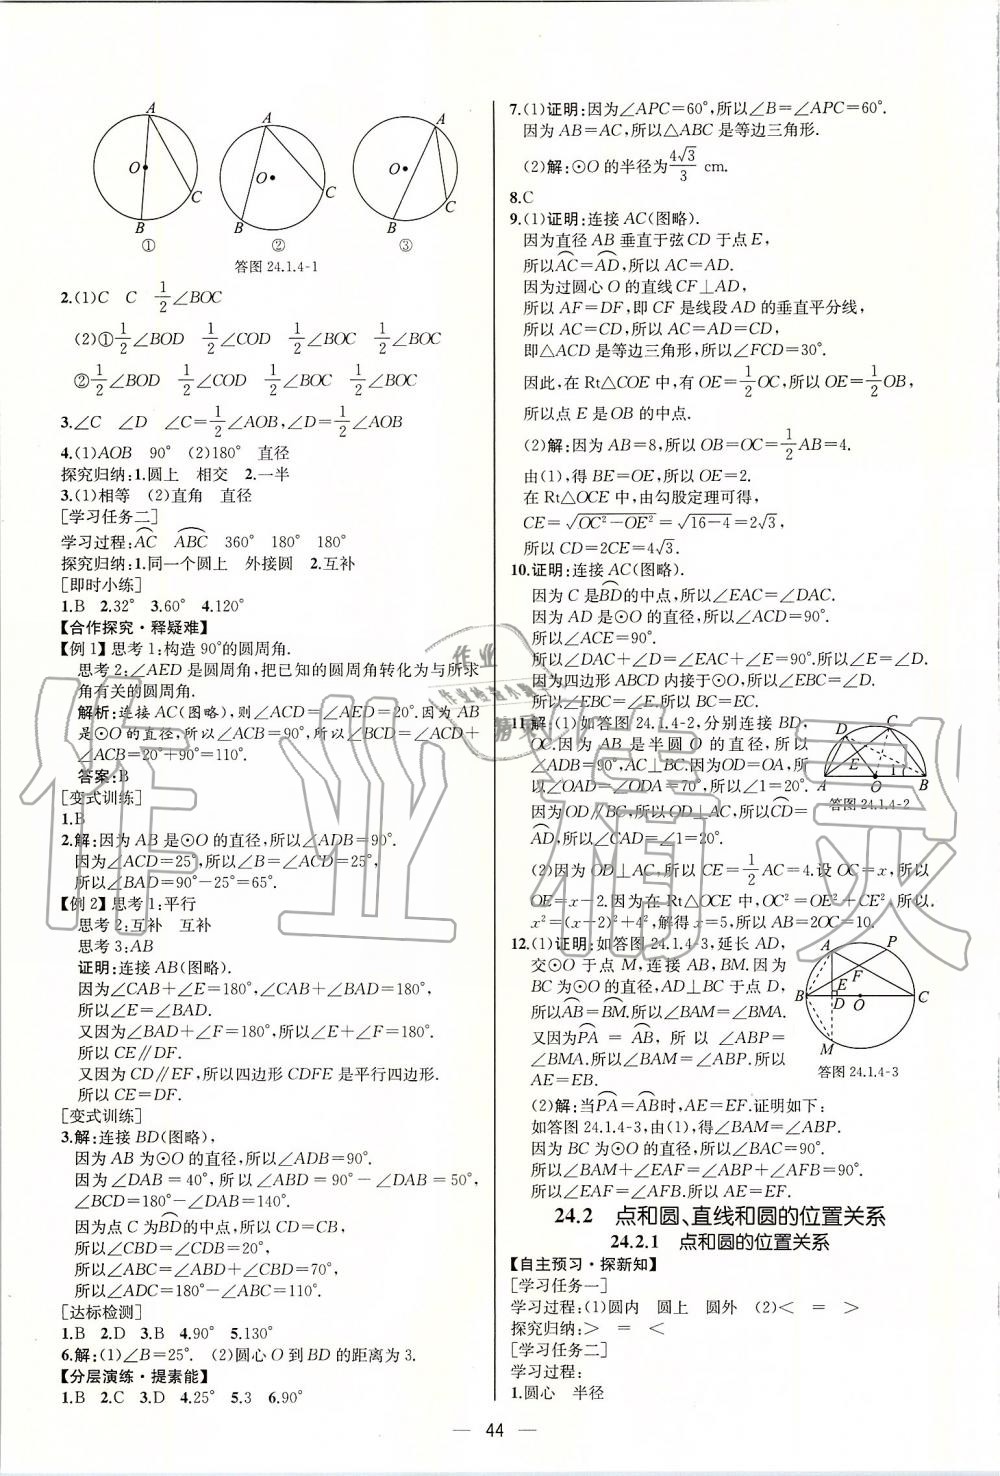 A
O
B
C
①
A
O
B
C
②
A
O
B
C
③
答图 24.1.4-1
2.(1)C　C　1/2∠BOC
(2)①1/2∠BOD　1/2∠COD　1/2∠BOC　1/2∠BOC
②1/2∠BOD　1/2∠COD　1/2∠BOC　1/2∠BOC
3.∠C　∠D　∠C=1/2∠AOB,∠D=1/2∠AOB
4.(1)AOB　90°　(2)180°　直径
探究归纳:1.圆上　相交　2.一半
3.(1)相等　(2)直角　直径
[学习任务二]
学习过程:A͡C　A͡BC　360°　180°　180°
探究归纳:1.同一个圆上　外接圆　2.互补
[即时小练]
1.B　2.32°　3.60°　4.120°
【合作探究·释疑难】
【例 1】思考 1:构造 90°的圆周角.
思考 2:∠AED 是圆周角,把已知的圆周角转化为与所求
角有关的圆周角.
解析:连接 AC(图略),则∠ACD=∠AED=20°.因为 AB
是⊙O 的直径,所以∠ACB=90°,所以∠BCD=∠ACD+
∠ACB=20°+90°=110°.
答案:B
[变式训练]
1.B
2.解:因为 AB 是⊙O 的直径,所以∠ADB=90°.
因为∠ACD=25°,所以∠B=∠ACD=25°,
所以∠BAD=90°-25°=65°.
【例 2】思考 1:平行
思考 2:互补　互补
思考 3:AB
证明:连接 AB(图略).
因为∠CAB+∠E=180°,∠CAB+∠BAD=180°,
所以∠E=∠BAD.
又因为∠BAD+∠F=180°,所以∠E+∠F=180°.
所以 CE∥DF.
又因为 CD∥EF,所以四边形 CDFE 是平行四边形.
所以 CE=DF.
[变式训练]
3.解:连接 BD(图略),
因为 AB 为⊙O 的直径,所以∠ADB=90°.
因为∠DAB=40°,所以∠ABD=90°-∠DAB=50°,
∠BCD=180°-∠DAB=140°.
因为点 C 为B͡D的中点,所以 CD=CB,
所以∠CBD=∠CDB=20°,
所以∠ABC=∠ABD+∠CBD=70°,
所以∠ADC=180°-∠ABC=110°.
[达标检测]
1.B　2.D　3.B　4.90°　5.130°
6.解:(1)∠B=25°.　(2)圆心 O 到 BD 的距离为 3.
【分层演练·提素能】
1.B　2.C　3.D　4.25°　5.3　6.90°
7.(1)证明:因为∠APC=60°,所以∠B=∠APC=60°.
因为 AB=AC,所以△ABC 是等边三角形.
(2)解:⊙O 的半径为4√3/3 cm.
8.C
9.(1)证明:连接 AC(图略).
因为直径 AB 垂直于弦 CD 于点 E,
所以A͡C=A͡D,所以 AC=AD.
因为过圆心 O 的直线 CF⊥AD,
所以 AF=DF,即 CF 是线段 AD 的垂直平分线,
所以 AC=CD,所以 AC=AD=CD,
即△ACD 是等边三角形,所以∠FCD=30°.
因此,在 Rt△COE 中,有 OE=1/2OC,所以 OE=1/2OB,
所以点 E 是 OB 的中点.
(2)解:因为 AB=8,所以 OB=OC=1/2AB=4.
由(1),得 BE=OE,所以 OE=2.
在 Rt△OCE 中,由勾股定理可得,
CE=√(OC²-OE²)=√(16-4)=2√3,
所以 CD=2CE=4√3.
10.证明:连接 AC(图略).
因为 C 是B͡D的中点,所以∠EAC=∠DAC.
因为 AD 是⊙O 的直径,所以∠ACD=90°.
所以∠ACE=90°.
所以∠DAC+∠D=∠EAC+∠E=90°,所以∠E=∠D.
因为四边形 ABCD 内接于⊙O,所以∠EBC=∠D.
所以∠EBC=∠E.所以 BC=EC.
11.解:(1)如答图 24.1.4-2,分别连接 BD,
OC.因为 AB 是半圆 O 的直径,所以
∠ADB=90°,AC⊥BC.因为 OD=OA,所
以∠OAD=∠ODA=70°,所以∠1=20°.
因为 OD∥BC,所以 OD⊥AC,所以C͡D=
A͡D,所以∠CAD=∠1=20°.
D
C
E
1
A
O
B
答图 24.1.4-2
(2)因为 OD⊥AC,所以 CE=1/2AC=4.设 OC=x,所以
OE=x-2.因为在 Rt△OCE 中,OC²=OE²+CE²,所以
x²=(x-2)²+4²,解得 x=5,所以 AB=2OC=10.
12.(1)证明:如答图 24.1.4-3,延长 AD,
交⊙O 于点 M,连接 AB,BM.因为
BC 为⊙O 的直径,AD⊥BC 于点 D,
所以A͡B=B͡M.所以∠BAM=∠BMA.
又因为P͡A=A͡B,所以∠ABP=
∠BMA.所以∠BAM=∠ABP.所以
AE=EB.
A
P
E
F
B
D
O
C
M
答图 24.1.4-3
(2)解:当P͡A=A͡B时,AE=EF.证明如下:
如答图 24.1.4-3,由(1),得∠BAM=∠ABP.
因为 BC 为⊙O 的直径,所以∠BAC=90°.
所以∠BAM+∠EAF=∠ABP+∠AFB=90°.
所以∠EAF=∠AFB.所以 AE=EF.
24.2　点和圆、直线和圆的位置关系
24.2.1　点和圆的位置关系
【自主预习·探新知】
[学习任务一]
学习过程:(1)圆内　圆上　圆外　(2)<　=　>
探究归纳:>　=　<
[学习任务二]
学习过程:
1.圆心　半径
— 44 —
作业精灵